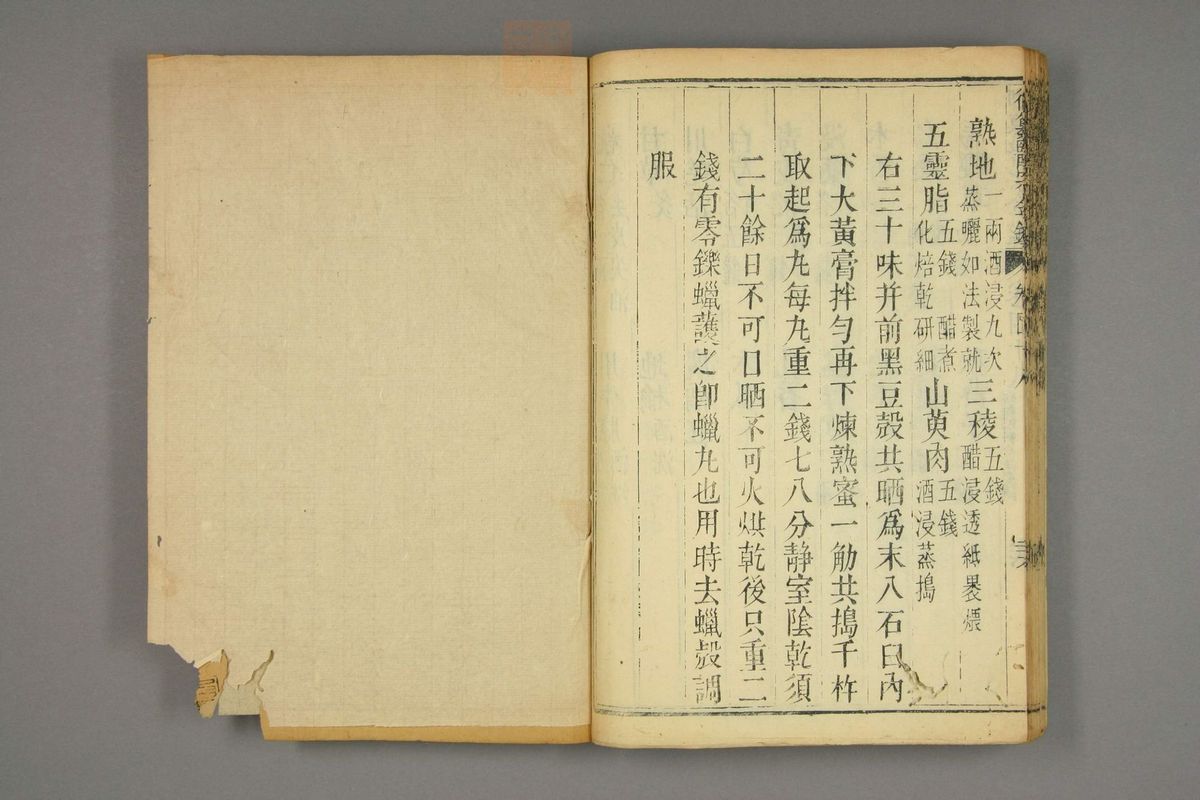 熟地一兩酒浸九次蒸曬如法製就三稜五錢醋浸透紙褁煨
五靈脂五錢醋煮化焙乾研細山萸肉五錢酒浸蒸搗
右三十味并前黑豆殼共晒爲末入石臼內
下大黃膏拌勻再下煉熟蜜一觔共搗千杵
取起爲丸每丸重二錢七八分靜室陰乾須
二十餘日不可日晒不可火烘乾後只重二
錢有零鑠蠟護之卽蠟丸也用時去蠟殼調
服